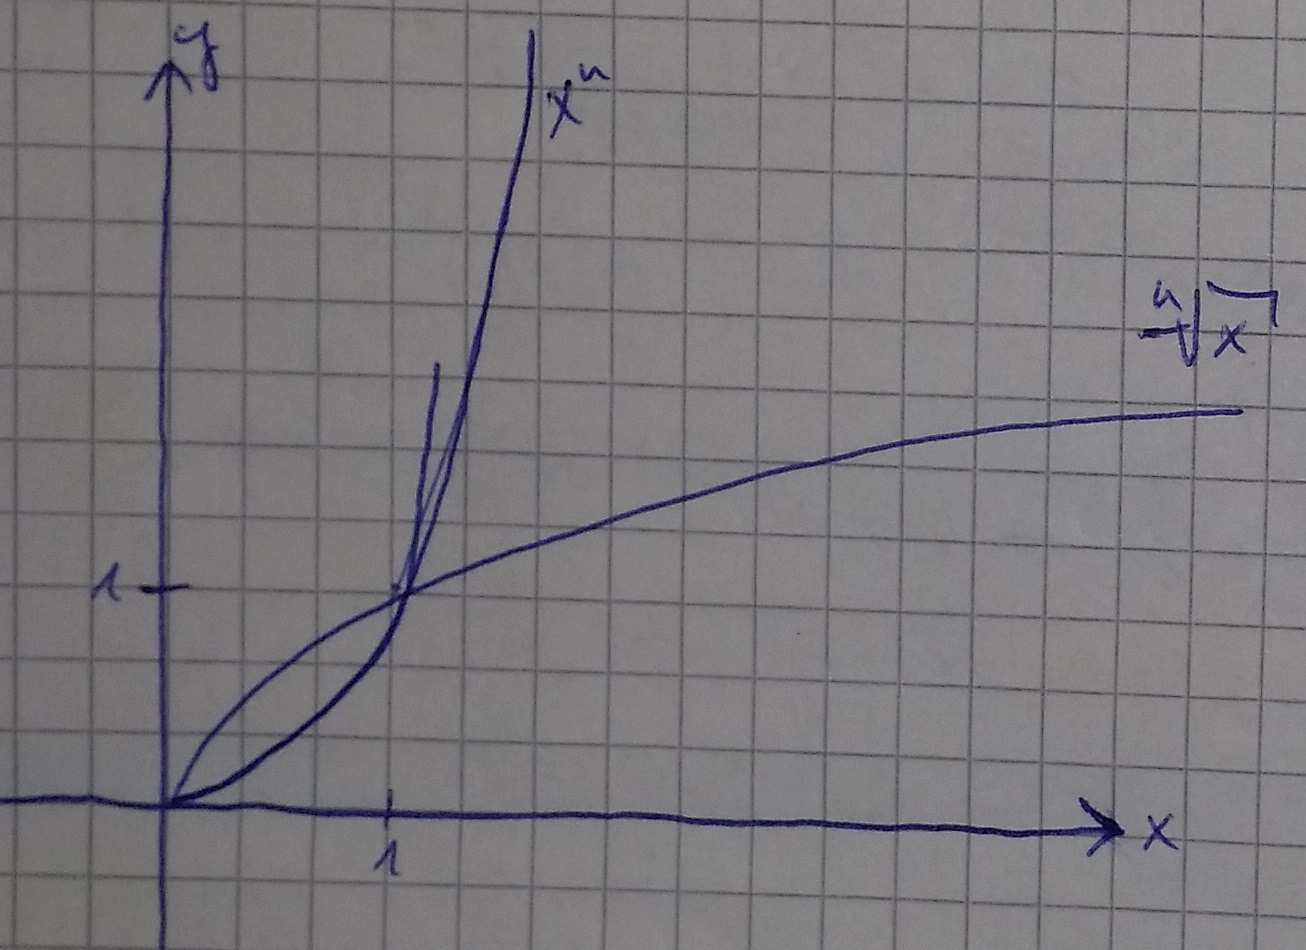 y
xⁿ
ⁿ√x
1
1
x